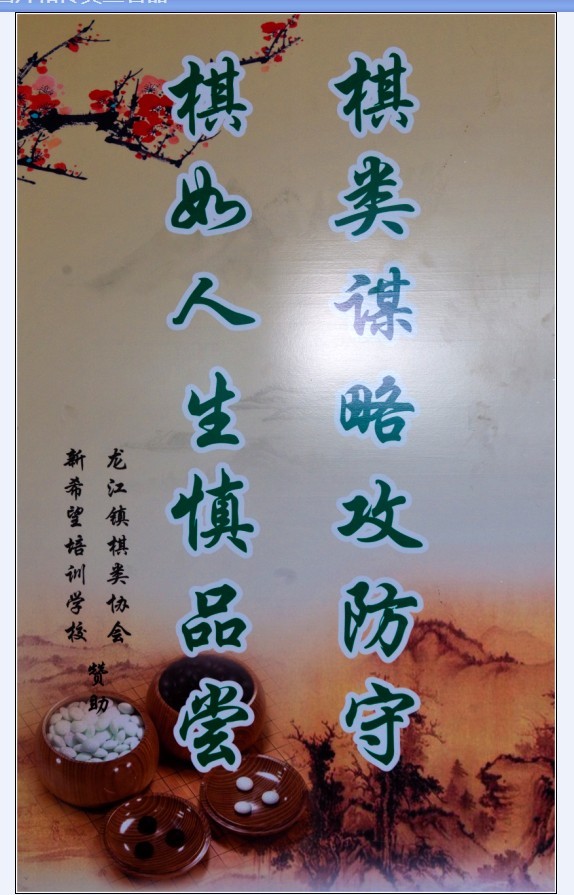 棋类谋略攻防守
棋如人生慎品尝
龙江镇棋类协会
新希望培训学校
赞助